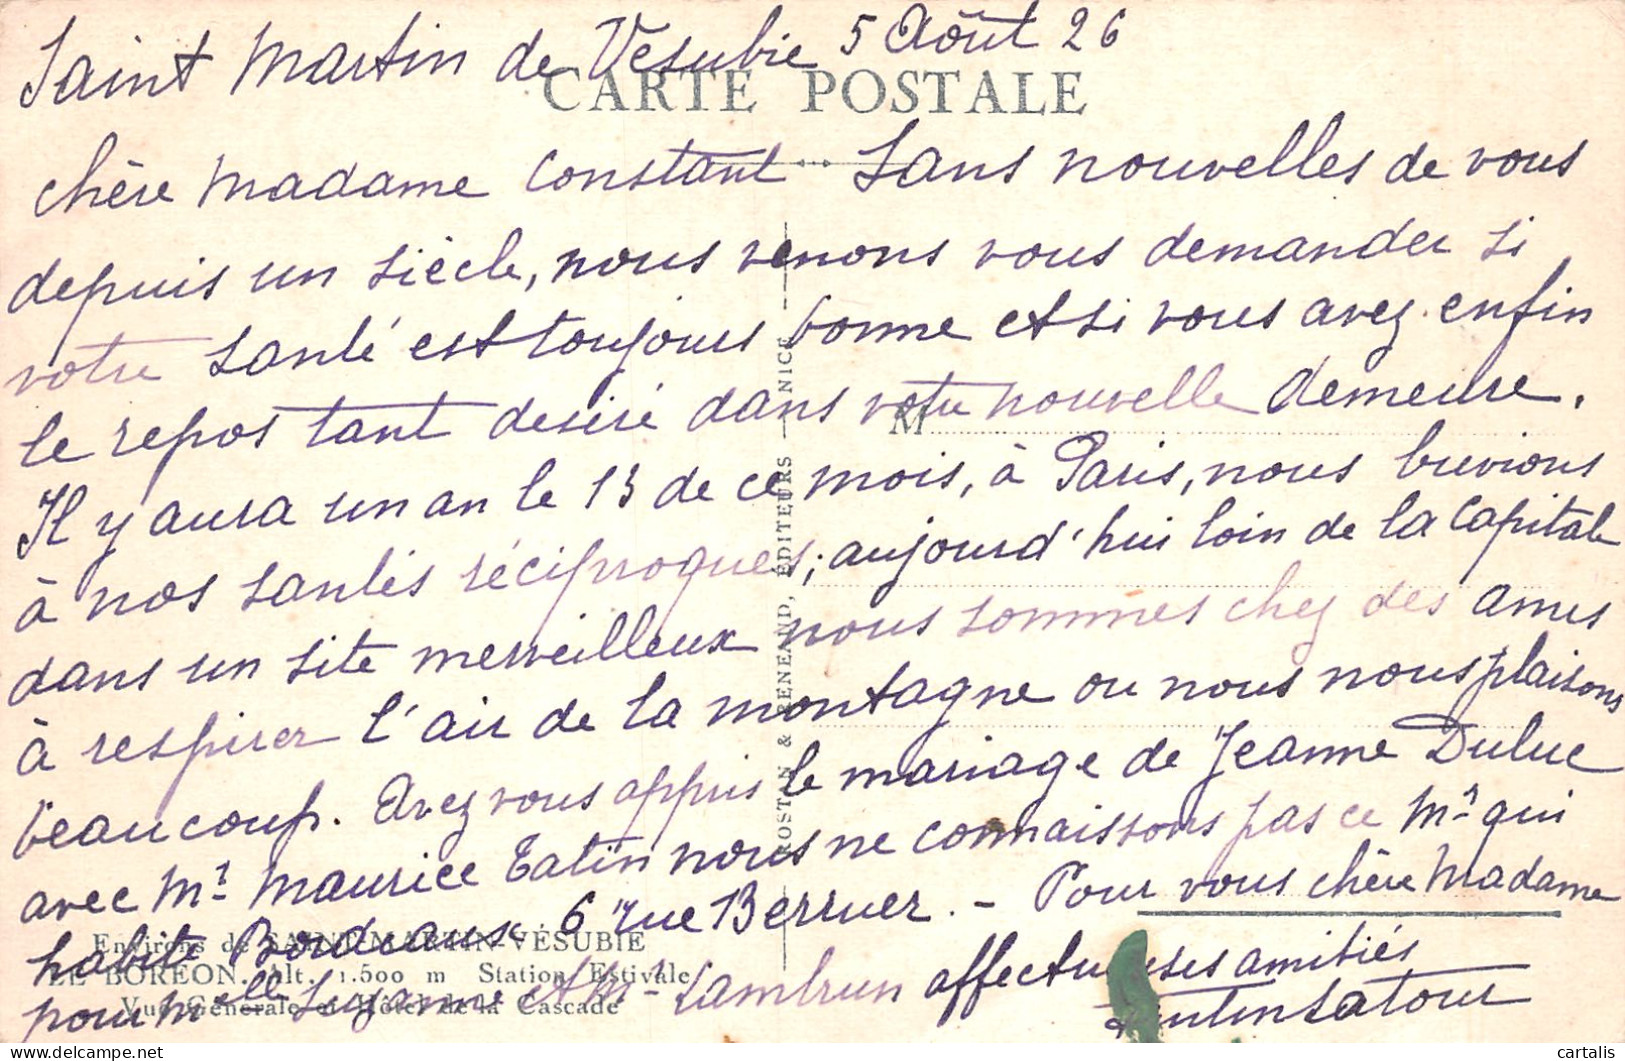 Saint Martin de Vésubie 5 Août 26
CARTE POSTALE
chère Madame Constant Sans nouvelles de vous
depuis un siècle, nous venons vous demander si
votre santé est toujours bonne et si vous avez enfin
le repos tant désiré dans votre nouvelle demeure.
M
Il y aura un an le 13 de ce mois, à Paris, nous buvions
à nos santés réciproques; aujourd'hui loin de la Capitale
dans un site merveilleux nous sommes chez des amis
à respirer l'air de la montagne ou nous nous plaisons
beaucoup. Avez vous appris le mariage de Jeanne Duluc
avec Mr Maurice Tatin nous ne connaissons pas ce Mr qui
habite Bordeaux 6 rue Berruer. - Pour vous chère Madame
pour Melle Suzanne et Mr Lambrun affectueuses amitiés
ROSTAN & RENEAND, ÉDITEURS — NICE
Environs de SAINT-MARTIN-VÉSUBIE
LE BORÉON. Alt. 1.500 m Station Estivale
Vue Générale et Hôtel de la Cascade
cartalis